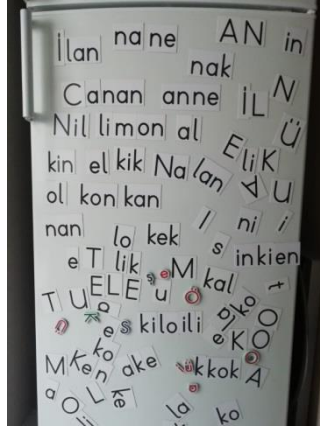 İlan na ne AN in
nak
Canan anne İL N
Nil limon al Ü
kin el kik Na lan E liK
ol kon kan A U
nan l ni i
lo kek s inkien
e T lik s e M kal t
T U ELE u o ko
a la
e s kiloili e KOO
ko
M Ken ake kkok A
a O L ke
la ko